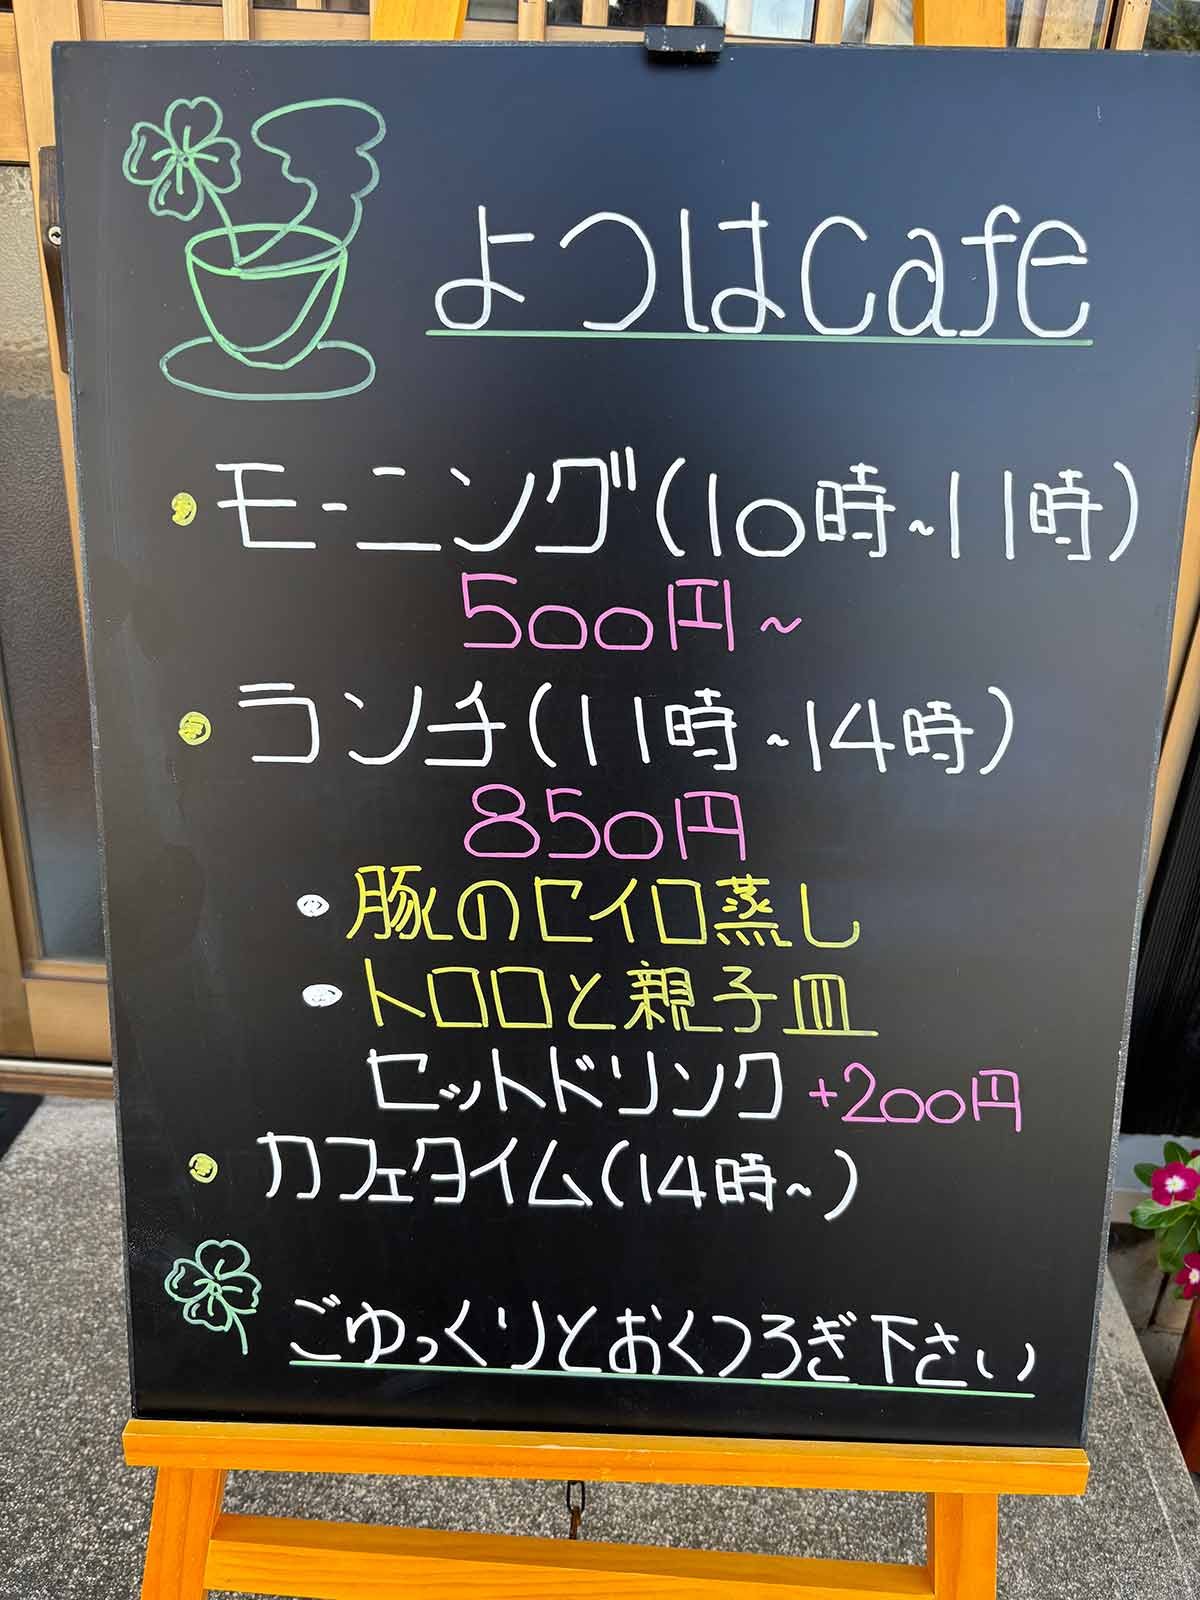 よつはCafe
・モーニング(10時~11時)
500円~
・ランチ(11時~14時)
850円
・豚のセイロ蒸し
・トロロと親子皿
セットドリンク +200円
・カフェタイム(14時~)
ごゆっくりとおくつろぎ下さい